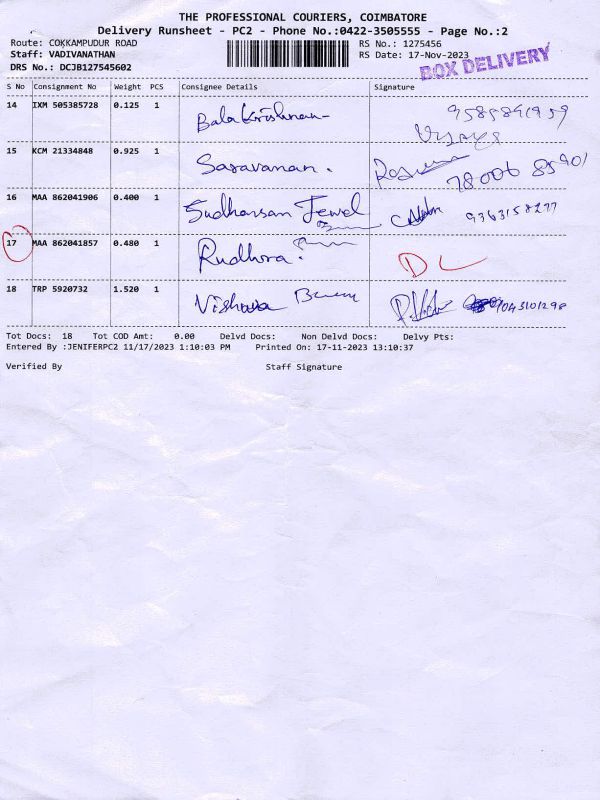 THE PROFESSIONAL COURIERS, COIMBATORE
Delivery Runsheet - PC2 - Phone No.:0422-3505555 - Page No.:2
Route: COKKAMPUDUR ROAD RS No.: 1275456
Staff: VADIVANATHAN RS Date: 17-Nov-2023
DRS No.: DCJB127545602 BOX DELIVERY
S No Consignment No Weight PCS Consignee Details Signature
14 IXM 505385728 0.125 1 Bala Krishnan
15 KCM 21334848 0.925 1 Saravanan.
16 MAA 862041906 0.400 1 Sudharsan Jewel
17 MAA 862041857 0.480 1 Rudhra. DL
18 TRP 5920732 1.520 1
Tot Docs: 18 Tot COD Amt: 0.00 Delvd Docs: Non Delvd Docs: Delvy Pts:
Entered By :JENIFERPC2 11/17/2023 1:10:03 PM Printed On: 17-11-2023 13:10:37
Verified By Staff Signature